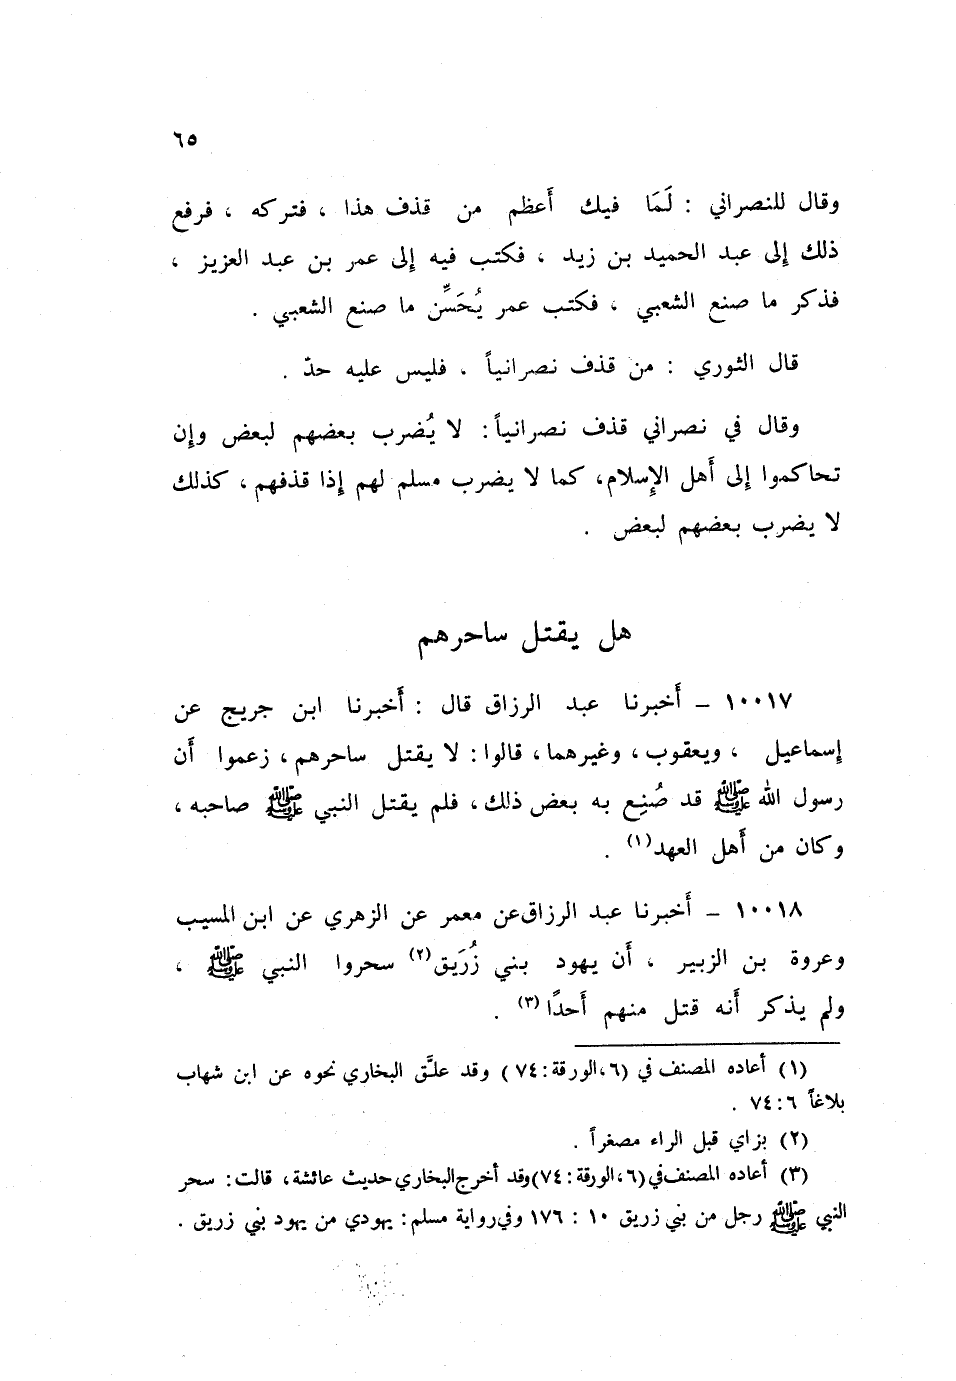 ٦٥
وقال للنصراني : لَمَا فيك أَعظم من قذف هذا ، فتركه ، فرفع
ذلك إِلى عبد الحميد بن زيد ، فكتب فيه إِلى عمر بن عبد العزيز ،
فذكر ما صنع الشعبي ، فكتب عمر يُحَسِّن ما صنع الشعبي .
قال الثوري : من قذف نصرانياً . فليس عليه حدّ .
وقال في نصراني قذف نصرانياً: لا يُضرب بعضهم لبعض وإِن
تحاكموا إِلى أَهل الإِسلام، كما لا يضرب مسلم لهم إِذا قذفهم، كذلك
لا يضرب بعضهم لبعض .
هل يقتل ساحرهم
١٠٠١٧ – أَخبرنا عبد الرزاق قال : أَخبرنا ابن جريج عن
إِسماعيل ، ويعقوب، وغيرهما، قالوا: لا يقتل ساحرهم، زعموا أَن
رسول الله ﷺ قد صُنِع به بعض ذلك، فلم يقتل النبي ﷺ صاحبه ،
وكان من أَهل العهد(١) .
١٠٠١٨ – أَخبرنا عبد الرزاق عن معمر عن الزهري عن ابن المسيب
وعروة بن الزبير ، أَن يهود بني زُرَيق(٢) سحروا النبي ﷺ ،
ولم يذكر أَنه قتل منهم أَحدًا(٣) .
(١) أعاده المصنف في (٦،الورقة:٧٤) وقد علَّق البخاري نحوه عن ابن شهاب
بلاغاً ٦:٧٤ .
(٢) بزاي قبل الراء مصغراً .
(٣) أعاده المصنف في (٦،الورقة:٧٤) وقد أخرج البخاري حديث عائشة، قالت: سحر
النبي ﷺ رجل من بني زريق ١٠ : ١٧٦ وفي رواية مسلم: يهودي من يهود بني زريق .